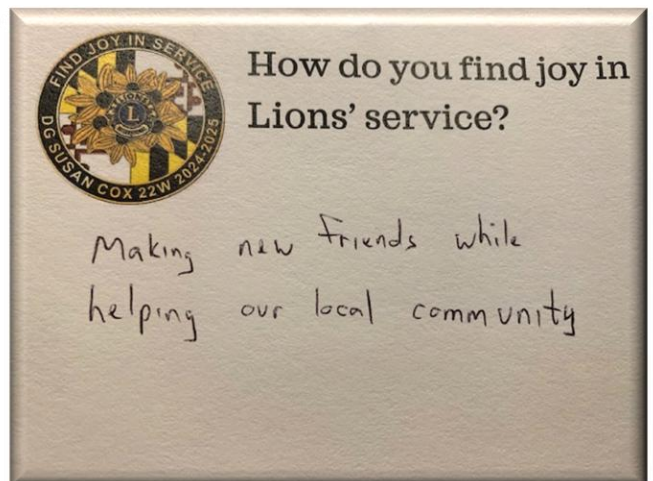 FIND JOY IN SERVICE
DG SUSAN COX 22W 2024-2025
L
How do you find joy in
Lions' service?
Making new friends while
helping our local community